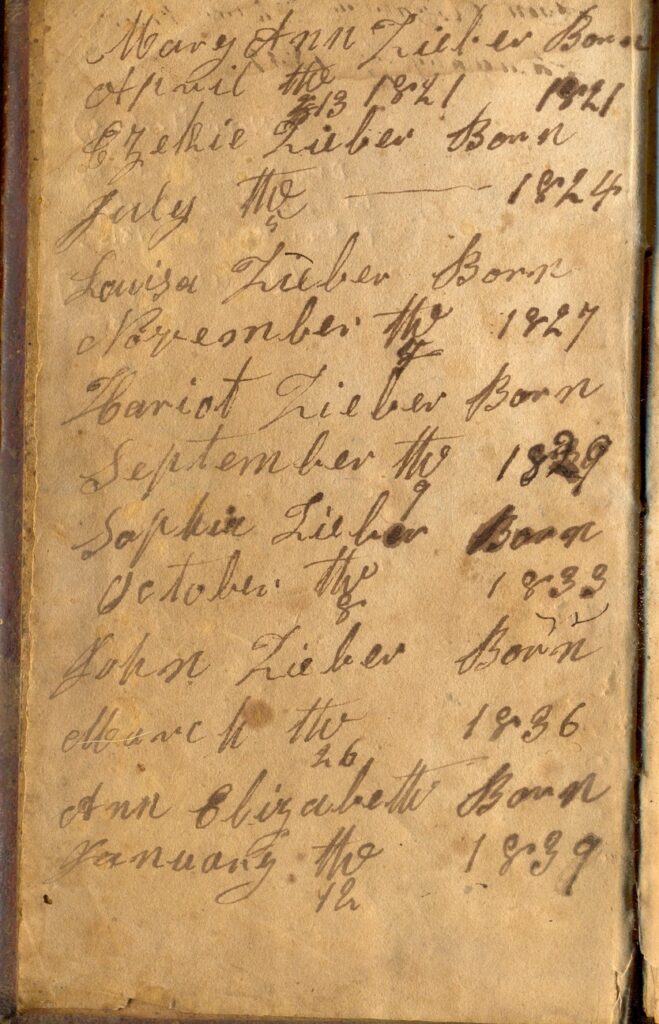 Mary Ann Zieber Born
April th 1821 1821
13
Ezekie Zieber Born
July th — 1824
5
Louisa Zieber Born
November th 1827
Hariot Zieber Born
September th 1829
9
Sophia Zieber Born
October th 1833
8
John Zieber Born
March th 1836
26
Ann Elizabeth Born
January th 1839
12